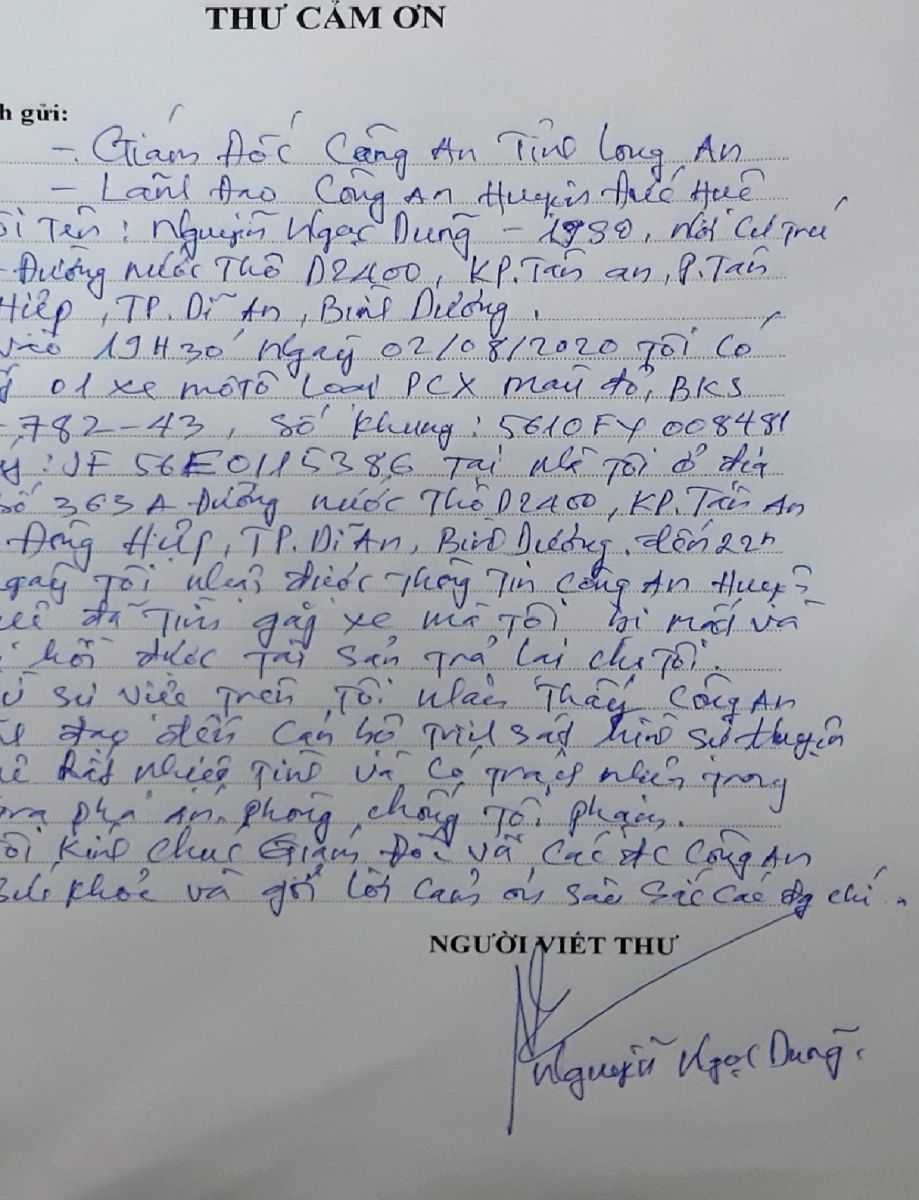 THƯ CẢM ƠN
h gửi:
- Giám Đốc Công An Tỉnh Long An
- Lãnh Đạo Công An Huyện Đức Huệ
ôi Tên : Nguyễn Ngọc Dũng - 1980, Nơi Cư trú
Đường nước Thô D2400, KP.Tân an, P.Tân
Hiệp, TP. Dĩ An, Bình Dương.
vào 19H30 ngày 02/08/2020 Tôi Có
01 xe môtô Loại PCX màu đỏ, BKS
782-43, Số khung : 5610FY 008481
: JF 56E0115386 Tại nhà Tôi ở địa
số 363A Đường nước Thô D2400, KP. Tân An
Đông Hiệp, TP. Dĩ An, Bình Dương. đến 22h
gày Tôi nhận được Thông Tin Công An Huyện
uệ đã Tìm gặp xe mà Tôi bị mất và
hồi được Tài sản trả lại cho Tôi.
sự việc trên Tôi nhận Thấy Công An
đạo đến Cán bộ Trinh sát hình sự Huyện
uệ Rất nhiệt Tình và Có Trách nhiệm trong
ra phá án, phòng chống Tội phạm.
ôi kính chúc Giám Đốc và Các đc Công An
khoẻ và gởi lời Cảm ơn sâu sắc Các đg chí.
NGƯỜI VIẾT THƯ
Nguyễn Ngọc Dũng.